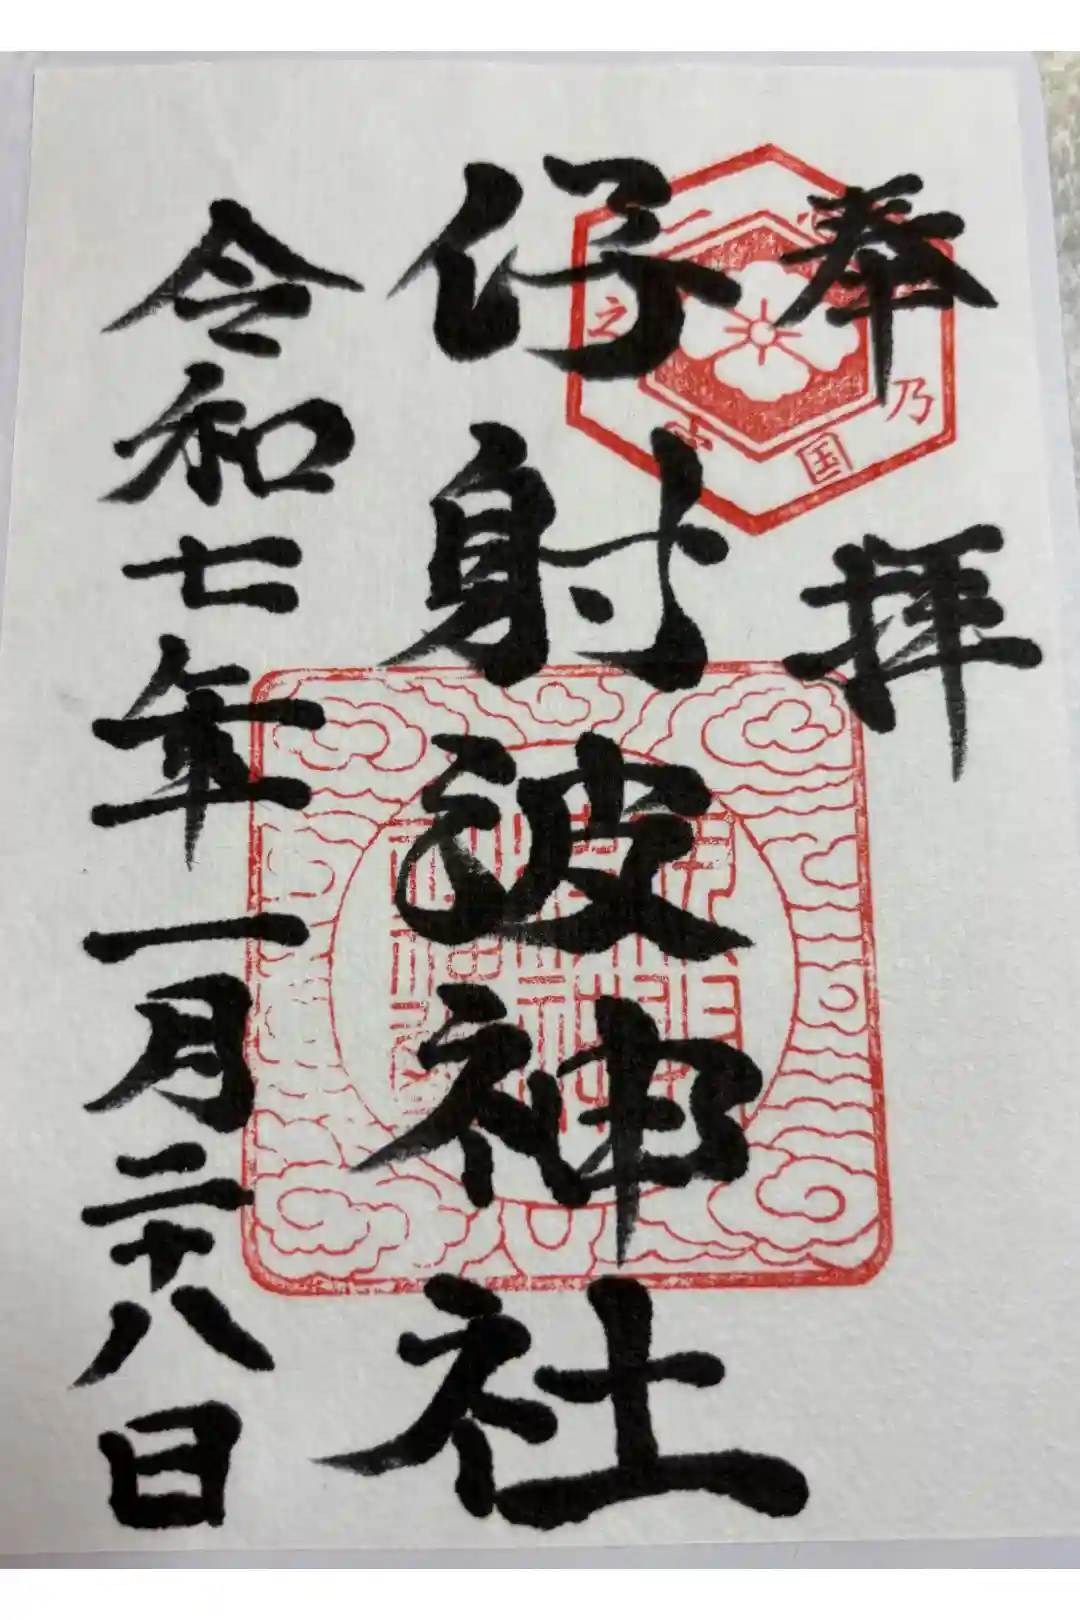 奉拝
乃国
一之
伊射波神社
令和七年一月二十八日